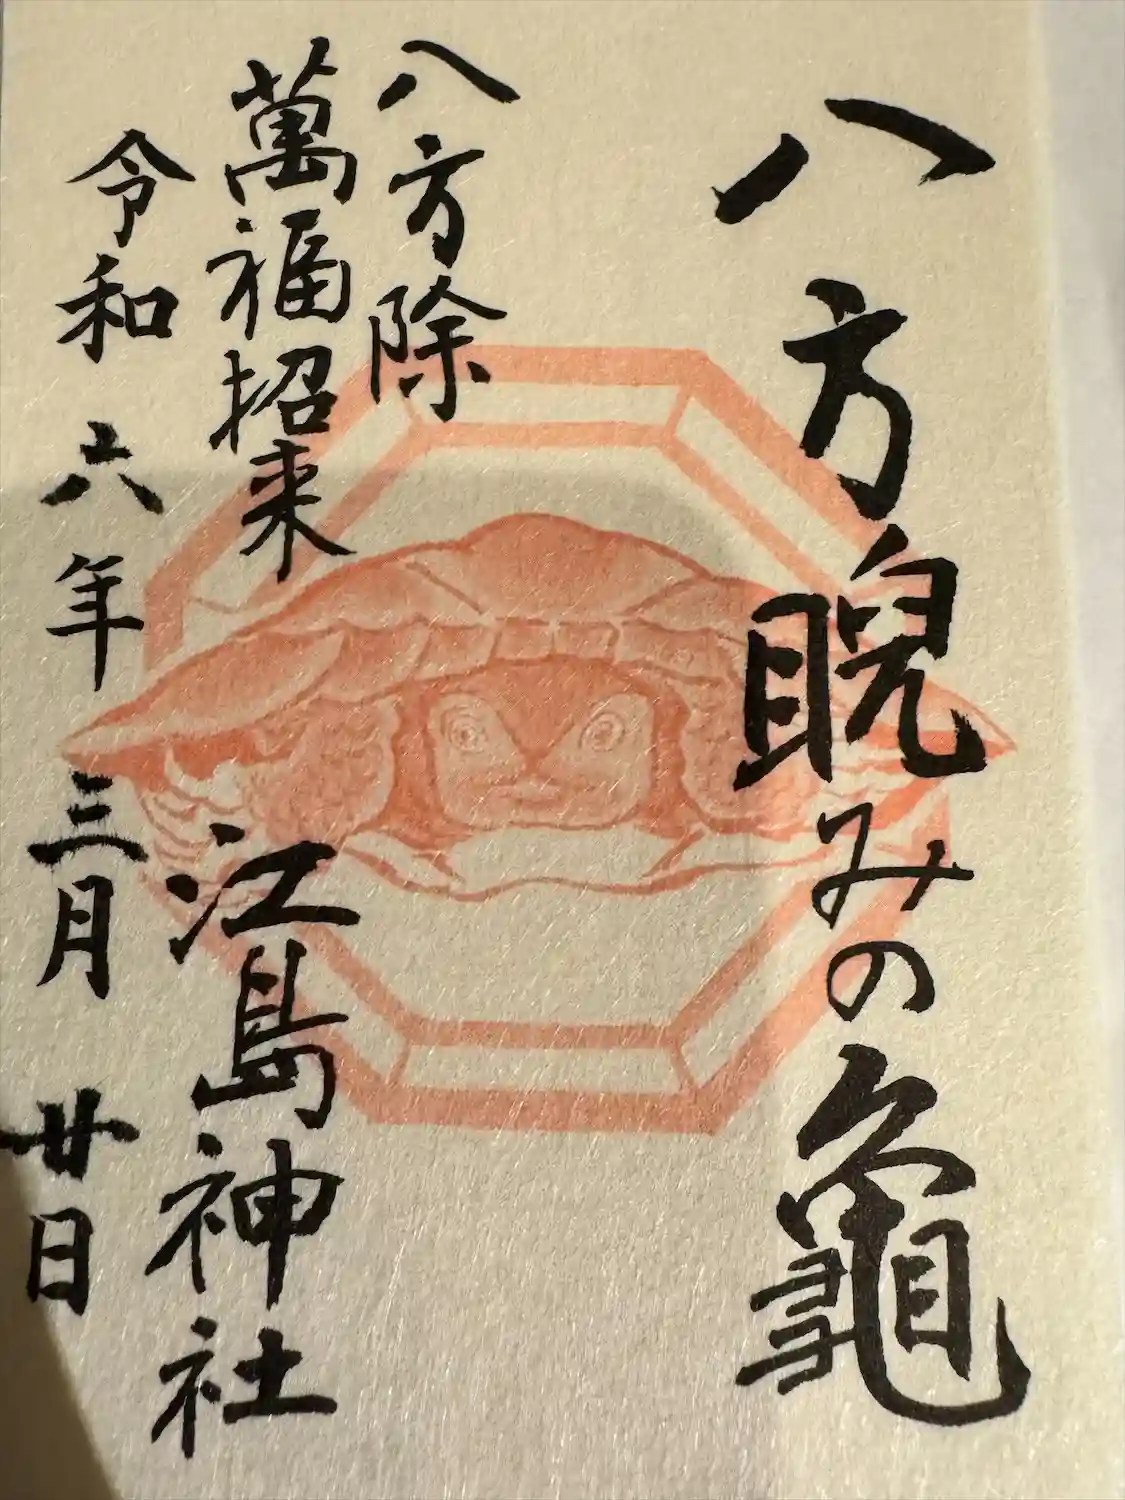 八方睨みの龜
八方除
萬福招来
江島神社
令和六年三月廿日